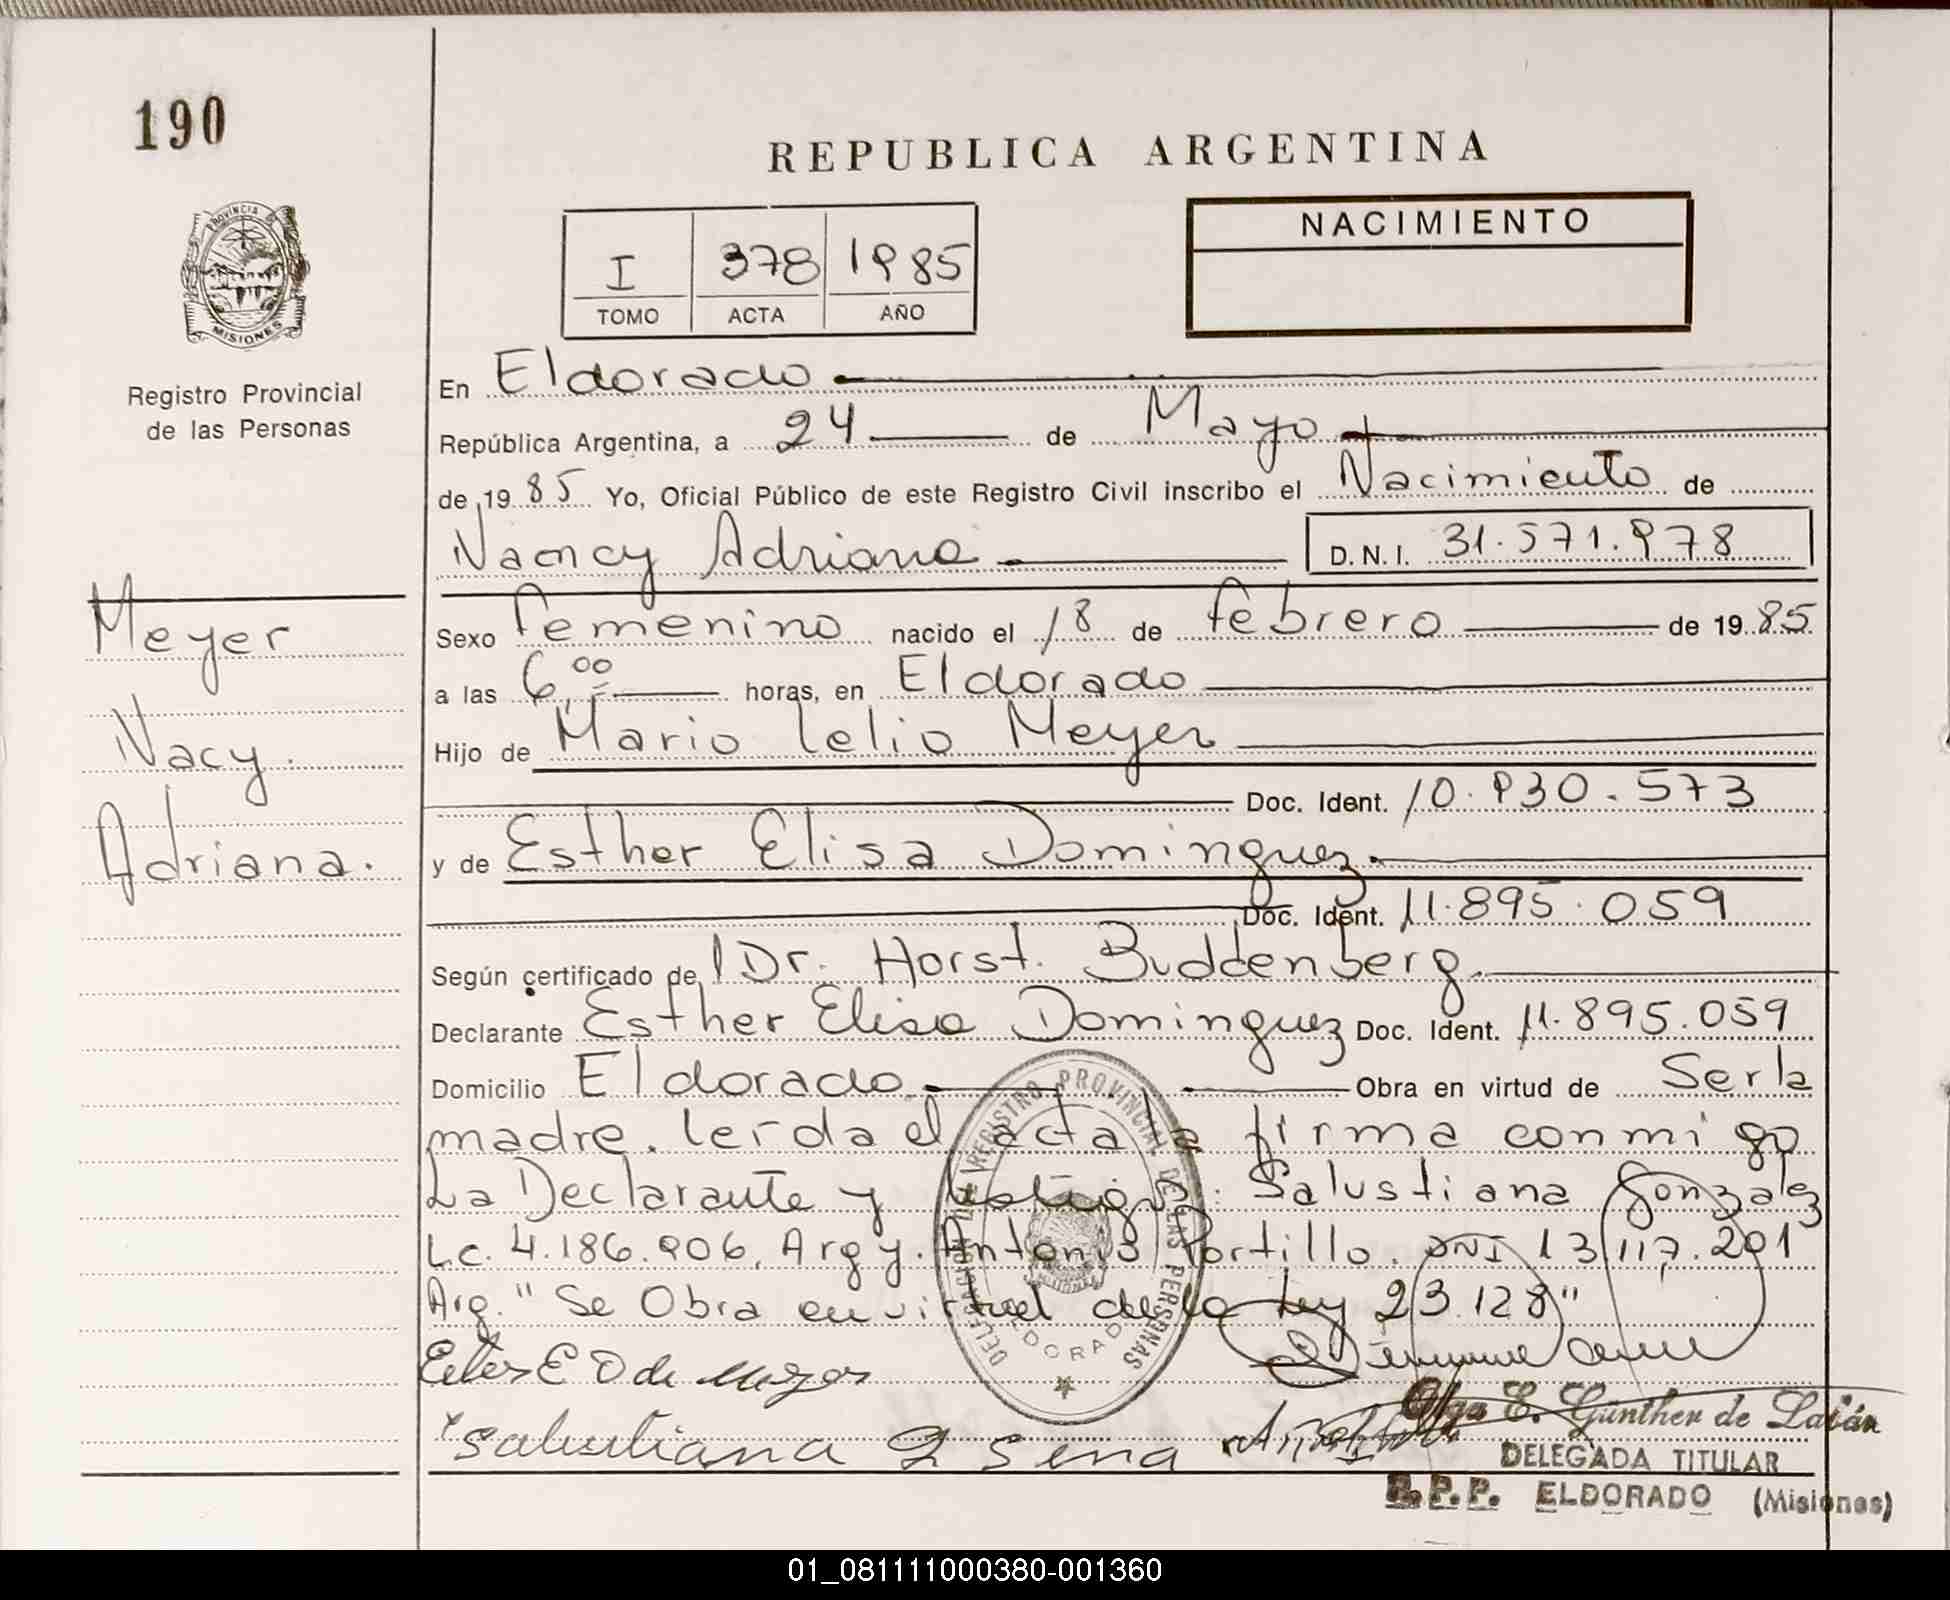 190
REPUBLICA ARGENTINA
PROVINCIA DE
MISIONES
Registro Provincial
de las Personas
I 378 1985
TOMO ACTA AÑO
NACIMIENTO
En Eldorado
República Argentina, a 24 de Mayo
de 1985 Yo, Oficial Público de este Registro Civil inscribo el Nacimiento de
Nancy Adriana
D.N.I. 31.571.978
Meyer
Nacy.
Adriana.
Sexo femenino nacido el 18 de febrero de 1985
a las 6,00 horas, en Eldorado
Hijo de Mario Lelio Meyer
Doc. Ident. 10.930.573
y de Esther Elisa Dominguez.
Doc. Ident. 11.895.059
Según certificado de Dr. Horst. Buddenberg.
Declarante Esther Elisa Dominguez Doc. Ident. 11.895.059
Domicilio Eldorado. Obra en virtud de Ser la
madre. leida el acta la firma conmigo
La Declarante y testigos: Salustiana Gonzalez
Lc. 4.186.906, Arg y. Antonio Portillo. DNI 13.117.291
Arg. "Se Obra en virtud de la Ley 23.128"
DELEGACION DEL REGISTRO PROVINCIAL DE LAS PERSONAS
ELDORADO
Ester E D de Meyer
Salustiana G Sena
Olga E. Günther de Laián
DELEGADA TITULAR
R.P.P. ELDORADO (Misiones)
01_081111000380-001360